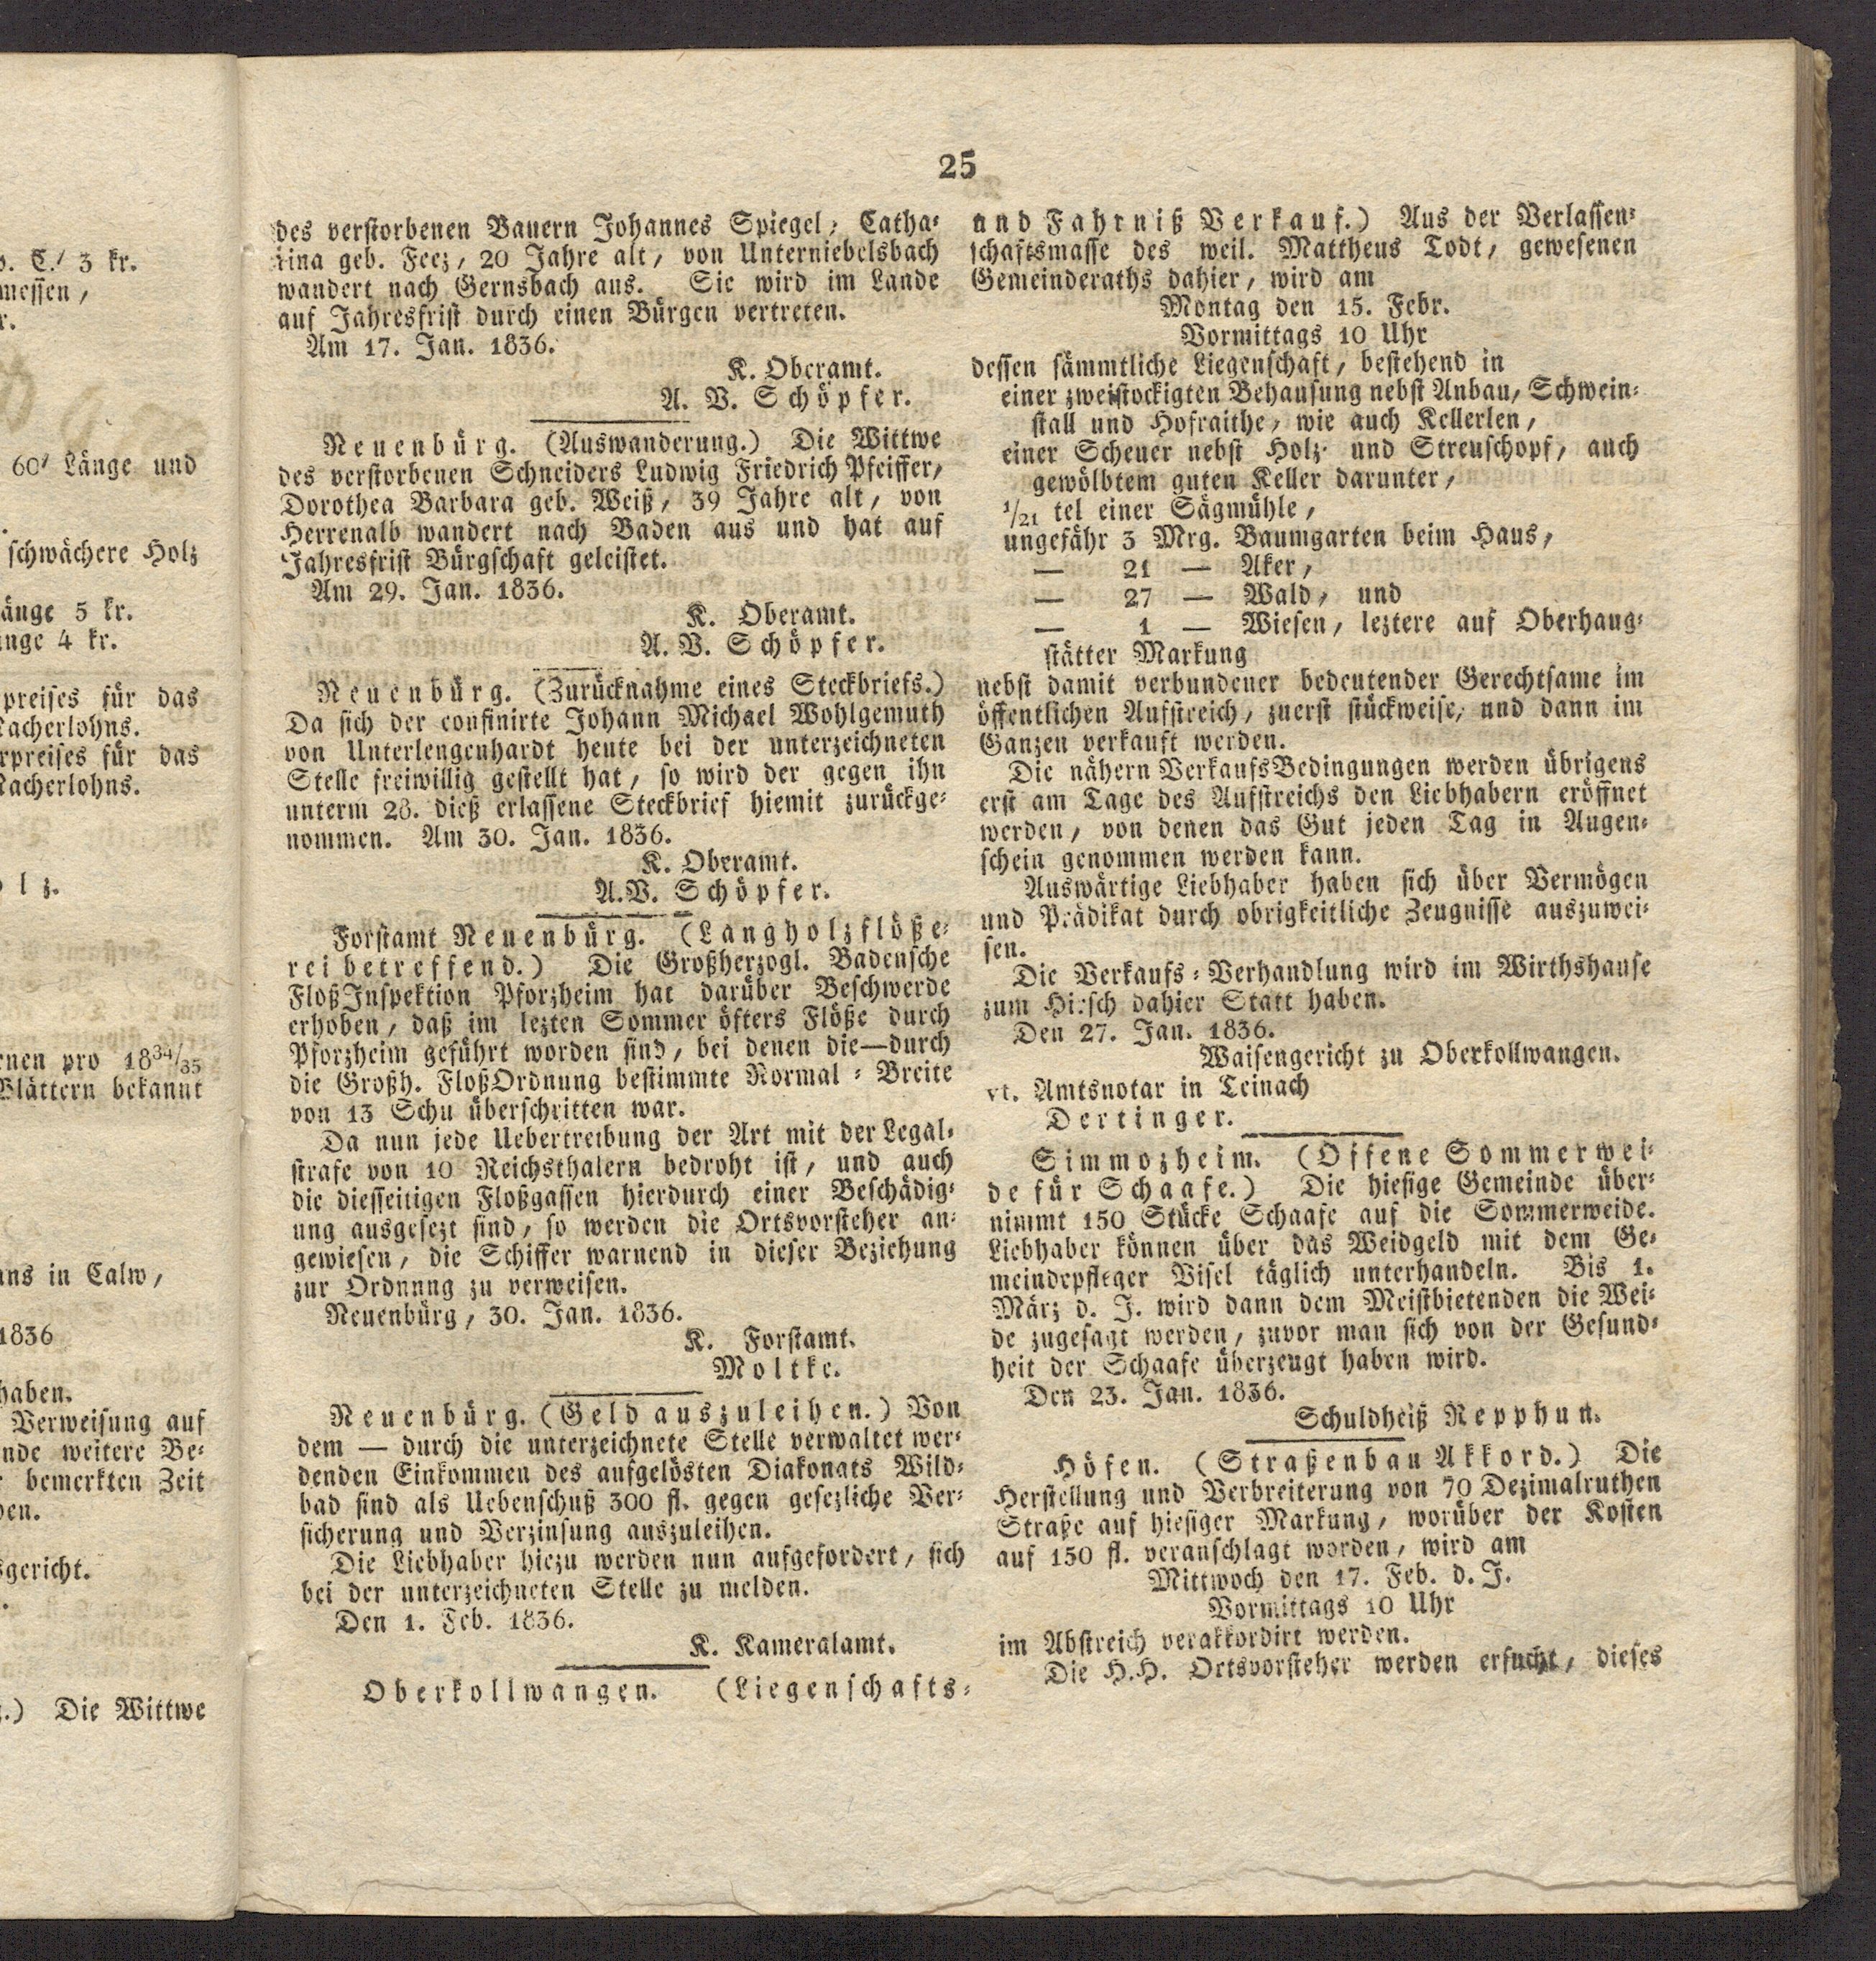 p. C.' 3 kr.
messen,
r.
60' Länge und
schwächere Holz
änge 5 kr.
inge 4 kr.
preises für das
kacherlohns.
rpreises für das
kacherlohns.
olz.
rnen pro 18 34/35
Blättern bekannt
ans in Calw,
1836
haben.
Verweisung auf
nde weitere Be-
r bemerkten Zeit
den.
sgericht.
.) Die Wittwe
25
des verstorbenen Bauern Johannes Spiegel, Catha-
rina geb. Feez, 20 Jahre alt, von Unterniebelsbach
wandert nach Gernsbach aus. Sie wird im Lande
auf Jahresfrist durch einen Bürgen vertreten.
Am 17. Jan. 1836.
K. Oberamt.
A. V. Schöpfer.
Neuenbürg. (Auswanderung.) Die Wittwe
des verstorbenen Schneiders Ludwig Friedrich Pfeiffer,
Dorothea Barbara geb. Weiß, 39 Jahre alt, von
Herrenalb wandert nach Baden aus und hat auf
Jahresfrist Bürgschaft geleistet.
Am 29. Jan. 1836.
K. Oberamt.
A. V. Schöpfer.
Neuenbürg. (Zurücknahme eines Steckbriefs.)
Da sich der confinirte Johann Michael Wohlgemuth
von Unterlengenhardt heute bei der unterzeichneten
Stelle freiwillig gestellt hat, so wird der gegen ihn
unterm 28. dieß erlassene Steckbrief hiemit zurückge-
nommen. Am 30. Jan. 1836.
K. Oberamt.
A.V. Schöpfer.
Forstamt Neuenbürg. (Langholzflöße-
rei betreffend.) Die Großherzogl. Badensche
FloßInspektion Pforzheim hat darüber Beschwerde
erhoben, daß im lezten Sommer öfters Flöße durch
Pforzheim geführt worden sind, bei denen die—durch
die Großh. FloßOrdnung bestimmte Normal-Breite
von 13 Schu überschritten war.
Da nun jede Uebertreibung der Art mit der Legal-
strafe von 10 Reichsthalern bedroht ist, und auch
die diesseitigen Floßgassen hierdurch einer Beschädig-
ung ausgesezt sind, so werden die Ortsvorsteher an-
gewiesen, die Schiffer warnend in dieser Beziehung
zur Ordnung zu verweisen.
Neuenbürg, 30. Jan. 1836.
K. Forstamt.
Moltke.
Neuenbürg. (Geld auszuleihen.) Von
dem — durch die unterzeichnete Stelle verwaltet wer-
denden Einkommen des aufgelösten Diakonats Wild-
bad sind als Uebenschuß 300 fl. gegen gesezliche Ver-
sicherung und Verzinsung auszuleihen.
Die Liebhaber hiezu werden nun aufgefordert, sich
bei der unterzeichneten Stelle zu melden.
Den 1. Feb. 1836.
K. Kameralamt.
Oberkollwangen. (Liegenschafts-
und Fahrniß Verkauf.) Aus der Verlassen-
schaftsmasse des weil. Mattheus Todt, gewesenen
Gemeinderaths dahier, wird am
Montag den 15. Febr.
Vormittags 10 Uhr
dessen sämmtliche Liegenschaft, bestehend in
einer zweistockigten Behausung nebst Anbau, Schwein-
stall und Hofraithe, wie auch Kellerlen,
einer Scheuer nebst Holz- und Streuschopf, auch
gewölbtem guten Keller darunter,
1/21 tel einer Sägmühle,
ungefähr 3 Mrg. Baumgarten beim Haus,
— 21 — Aker,
— 27 — Wald, und
— 1 — Wiesen, leztere auf Oberhaug-
stätter Markung
nebst damit verbundener bedeutender Gerechtsame im
öffentlichen Aufstreich, zuerst stückweise, und dann im
Ganzen verkauft werden.
Die nähern VerkaufsBedingungen werden übrigens
erst am Tage des Aufstreichs den Liebhabern eröffnet
werden, von denen das Gut jeden Tag in Augen-
schein genommen werden kann.
Auswärtige Liebhaber haben sich über Vermögen
und Prädikat durch obrigkeitliche Zeugnisse auszuwei-
sen.
Die Verkaufs-Verhandlung wird im Wirthshause
zum Hirsch dahier Statt haben.
Den 27. Jan. 1836.
Waisengericht zu Oberkollwangen.
vt. Amtsnotar in Teinach
Dertinger.
Simmozheim. (Offene Sommerwei-
de für Schaafe.) Die hiesige Gemeinde über-
nimmt 150 Stücke Schaafe auf die Sommerweide.
Liebhaber können über das Weidgeld mit dem Ge-
meindepfleger Visel täglich unterhandeln. Bis 1.
März d. J. wird dann dem Meistbietenden die Wei-
de zugesagt werden, zuvor man sich von der Gesund-
heit der Schaafe überzeugt haben wird.
Den 23. Jan. 1836.
Schuldheiß Repphun.
Höfen. (Straßenbau Akkord.) Die
Herstellung und Verbreiterung von 70 Dezimalruthen
Straße auf hiesiger Markung, worüber der Kosten
auf 150 fl. veranschlagt worden, wird am
Mittwoch den 17. Feb. d. J.
Vormittags 10 Uhr
im Abstreich verakkordirt werden.
Die H.H. Ortsvorsteher werden ersucht, dieses